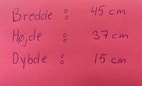 Bredde : 45 cm
Højde : 37 cm
Dybde : 15 cm